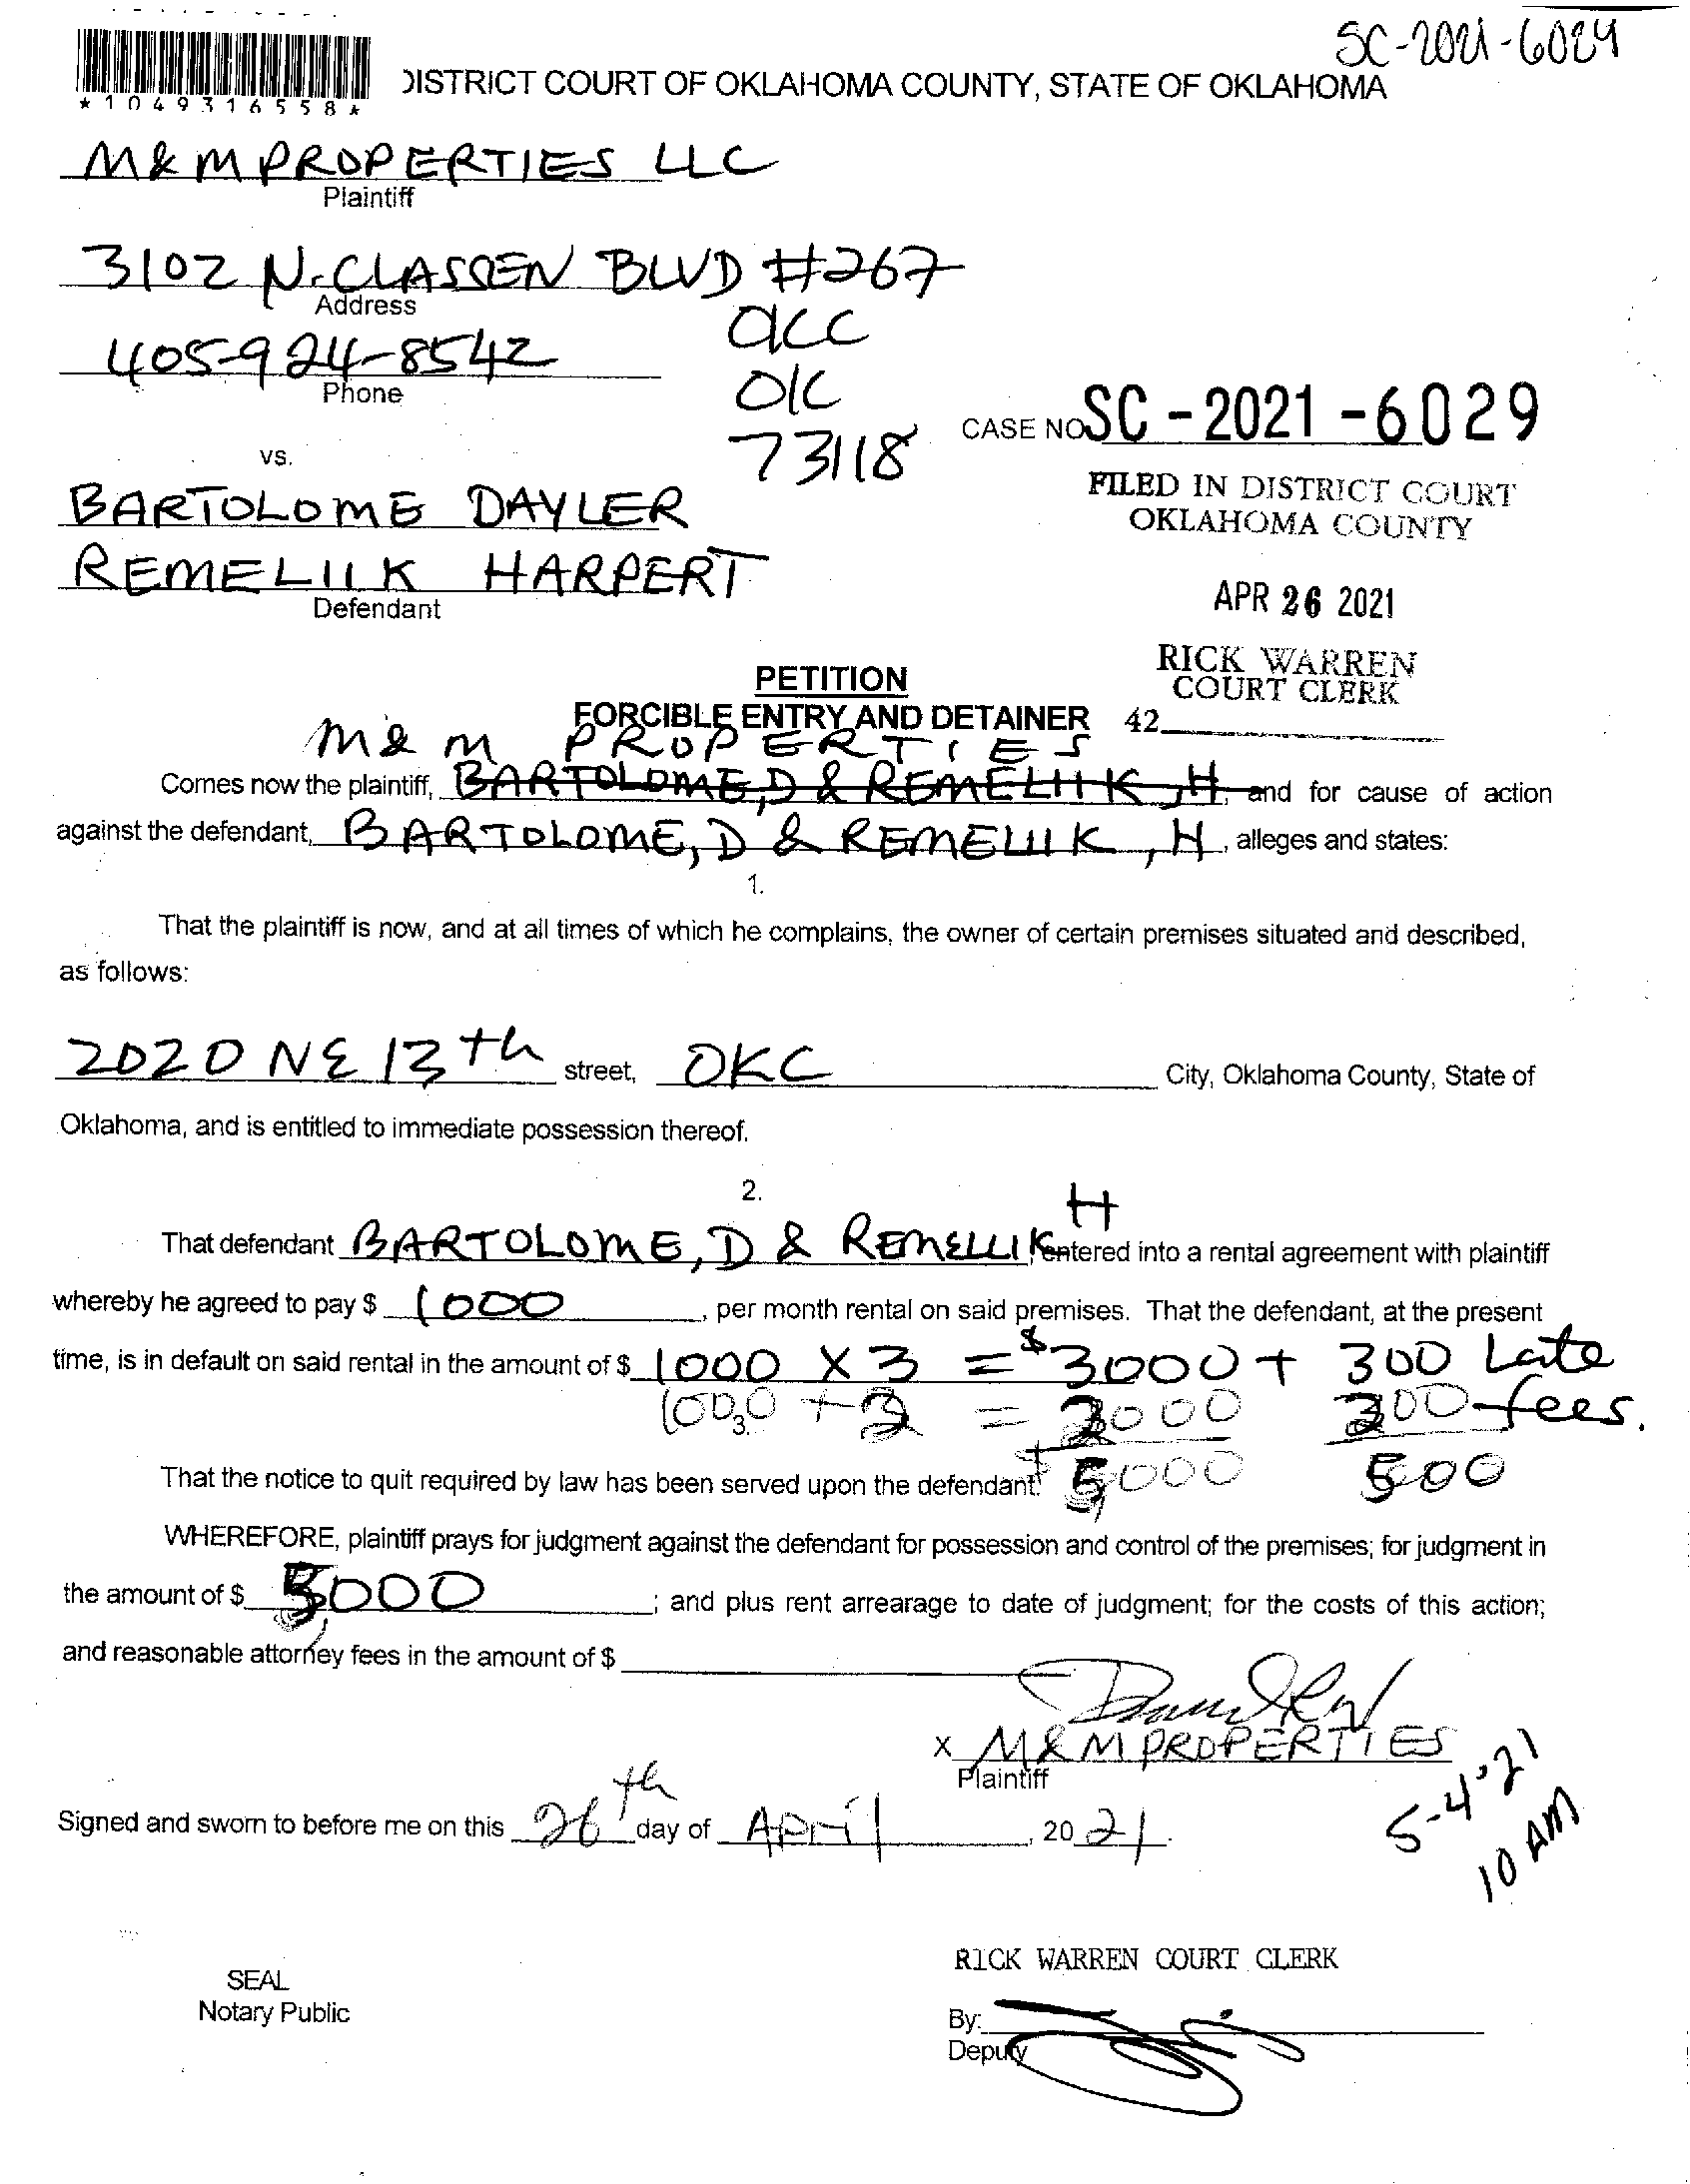 SC-2021-6029
*1049316558*
DISTRICT COURT OF OKLAHOMA COUNTY, STATE OF OKLAHOMA
M & M PROPERTIES LLC
Plaintiff
3102 N. CLASSEN BLVD #267
Address
OCC
405-924-8542
Phone
OK
73118
CASE NO. SC - 2021 - 6029
vs.
FILED IN DISTRICT COURT
OKLAHOMA COUNTY
BARTOLOME DAYLER
REMELIIK HARPERT
Defendant
APR 26 2021
RICK WARREN
COURT CLERK
42
PETITION
FORCIBLE ENTRY AND DETAINER
M & M PROPERTIES
Comes now the plaintiff, BARTOLOME, D & REMELIIK, H, and for cause of action
against the defendant, BARTOLOME, D & REMELIIK, H, alleges and states:
1.
That the plaintiff is now, and at all times of which he complains, the owner of certain premises situated and described,
as follows:
2020 NE 13th street, OKC City, Oklahoma County, State of
Oklahoma, and is entitled to immediate possession thereof.
2.
That defendant BARTOLOME, D & REMELIIK H, entered into a rental agreement with plaintiff
whereby he agreed to pay $ 1000, per month rental on said premises. That the defendant, at the present
time, is in default on said rental in the amount of $ 1000 X 3 = $3000 + 300 Late
1000 + 2 = 2000 200 fees.
3.
That the notice to quit required by law has been served upon the defendant. $ 5000 500
WHEREFORE, plaintiff prays for judgment against the defendant for possession and control of the premises; for judgment in
the amount of $ 5,000; and plus rent arrearage to date of judgment; for the costs of this action;
and reasonable attorney fees in the amount of $
X M & M PROPERTIES
Plaintiff
5-4-21
10 AM
Signed and sworn to before me on this 26th day of April, 2021.
RICK WARREN COURT CLERK
SEAL
Notary Public
By:
Deputy